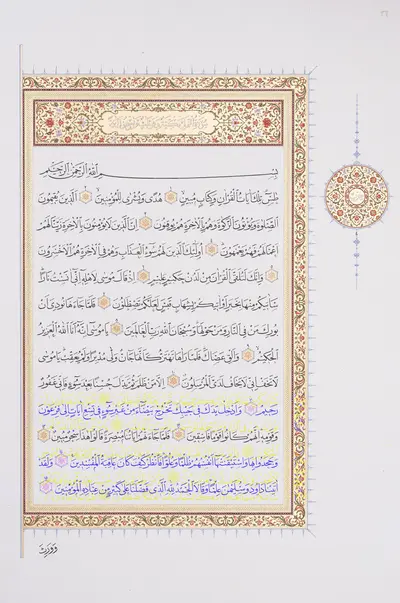 بسم الله الرحمن الرحيم
طس تلك آيات القرآن وكتاب مبين هدى وبشرى للمؤمنين الذين يقيمون
الصلاة ويؤتون الزكاة وهم بالآخرة هم يوقنون إن الذين لا يؤمنون بالآخرة زينا لهم
أعمالهم فهم يعمهون أولئك الذين لهم سوء العذاب وهم في الآخرة هم الأخسرون
وإنك لتلقى القرآن من لدن حكيم عليم إذ قال موسى لأهله إني آنست نارا
سآتيكم منها بخبر أو آتيكم بشهاب قبس لعلكم تصطلون فلما جاءها نودي أن
بورك من في النار ومن حولها وسبحان الله رب العالمين يا موسى إنه أنا الله العزيز
الحكيم وألق عصاك فلما رآها تهتز كأنها جان ولى مدبرا ولم يعقب يا موسى
لا تخف إني لا يخاف لدي المرسلون إلا من ظلم ثم بدل حسنا بعد سوء فإني غفور
رحيم وأدخل يدك في جيبك تخرج بيضاء من غير سوء في تسع آيات إلى فرعون
وقومه إنهم كانوا قوما فاسقين فلما جاءتهم آياتنا مبصرة قالوا هذا سحر مبين
وجحدوا بها واستيقنتها أنفسهم ظلما وعلوا فانظر كيف كان عاقبة المفسدين ولقد
آتينا داود وسليمان علما وقالا الحمد لله الذي فضلنا على كثير من عباده المؤمنين
وورث